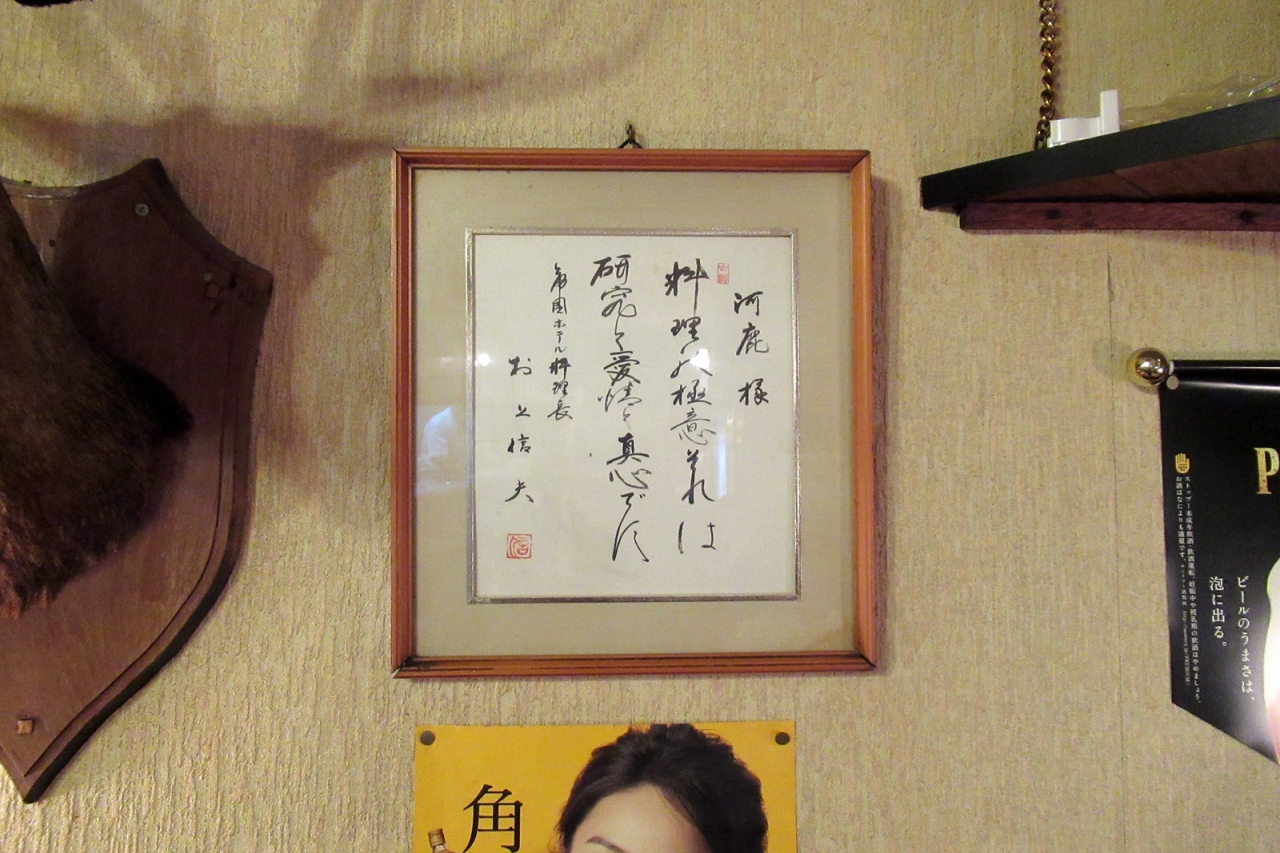 河鹿様
料理の極意それは
研究と愛情と真心です
帝国ホテル料理長
村上信夫
角
P
ビールのうまさは、
泡に出る。
ストップ!未成年飲酒・飲酒運転。妊娠中や授乳期の飲酒はやめましょう。
お酒はなによりも適量です。